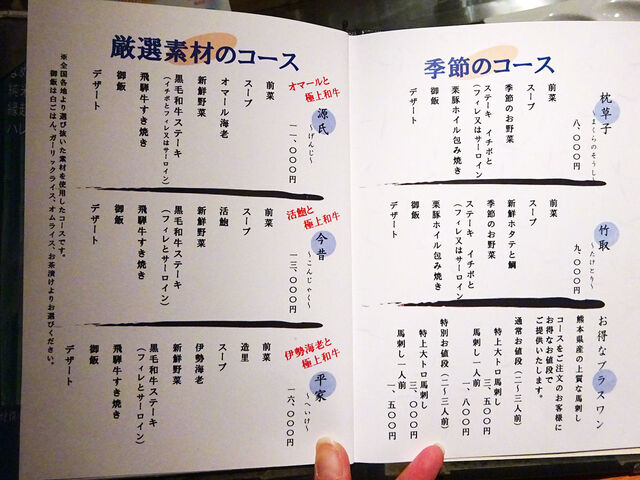 季節のコース
枕草子
~まくらのそうし~
八、〇〇〇円
前菜
スープ
季節のお野菜
ステーキ イチボと
(フィレ又はサーロイン)
栗豚ホイル包み焼き
御飯
デザート
竹取
~たけとり~
九、〇〇〇円
前菜
スープ
新鮮ホタテと鯛
季節のお野菜
ステーキ イチボと
(フィレ又はサーロイン)
栗豚ホイル包み焼き
御飯
デザート
お得なプラスワン
熊本県産の上質な馬刺し
コースをご注文のお客様に
お得なお値段で
ご提供いたします。
通常お値段(二~三人前)
特上大トロ馬刺し
三、五〇〇円
馬刺し一人前
一、八〇〇円
特別お値段(二~三人前)
特上大トロ馬刺し
三、〇〇〇円
馬刺し一人前
一、五〇〇円
厳選素材のコース
オマールと
極上和牛
源氏
~げんじ~
一一、〇〇〇円
前菜
スープ
オマール海老
新鮮野菜
黒毛和牛ステーキ
(イチボとフィレ又はサーロイン)
飛騨牛すき焼き
御飯
デザート
活鮑と
極上和牛
今昔
~こんじゃく~
一三、〇〇〇円
前菜
スープ
活鮑
新鮮野菜
黒毛和牛ステーキ
(フィレとサーロイン)
飛騨牛すき焼き
御飯
デザート
伊勢海老と
極上和牛
平家
~へいけ~
一六、〇〇〇円
前菜
造里
スープ
伊勢海老
新鮮野菜
黒毛和牛ステーキ
(フィレとサーロイン)
飛騨牛すき焼き
御飯
デザート
※全国各地より選び抜いた素材を使用したコースです。
御飯は白ごはん、ガーリックライス、オムライス、お茶漬けよりお選びください。